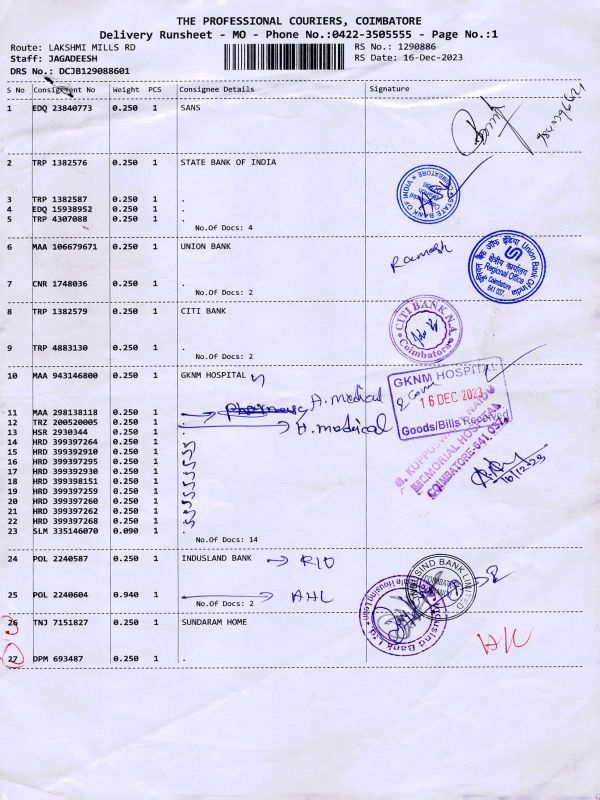 THE PROFESSIONAL COURIERS, COIMBATORE
Delivery Runsheet - MO - Phone No.:0422-3505555 - Page No.:1
Route: LAKSHMI MILLS RD RS No.: 1290886
Staff: JAGADEESH RS Date: 16-Dec-2023
DRS No.: DCJB129088601
S No Consignment No Weight PCS Consignee Details Signature
1 EDQ 23840773 0.250 1 SANS
2 TRP 1382576 0.250 1 STATE BANK OF INDIA
3 TRP 1382587 0.250 1 .
4 EDQ 15938952 0.250 1 .
5 TRP 4307088 0.250 1 .
No.Of Docs: 4
6 MAA 106679671 0.250 1 UNION BANK
Ramesh
Union Bank Of India
Regional Office
Coimbatore
641 037
7 CNR 1748036 0.250 1 .
No.Of Docs: 2
8 TRP 1382579 0.250 1 CITI BANK
CITI BANK N.A.
Coimbatore
9 TRP 4883130 0.250 1 .
No.Of Docs: 2
10 MAA 943146800 0.250 1 GKNM HOSPITAL
GKNM HOSPITAL
16 DEC 2023
Goods/Bills Received
11 MAA 298138118 0.250 1 . pharmacy A. medical
12 TRZ 200520005 0.250 1 . H. medical
13 HSR 2930344 0.250 1 .
14 HRD 399397264 0.250 1 .
15 HRD 399392910 0.250 1 .
16 HRD 399397295 0.250 1 .
17 HRD 399392930 0.250 1 .
18 HRD 399398151 0.250 1 .
19 HRD 399397259 0.250 1 .
20 HRD 399397260 0.250 1 .
21 HRD 399397262 0.250 1 .
22 HRD 399397268 0.250 1 .
23 SLM 335146070 0.090 1 .
No.Of Docs: 14
MEMORIAL HOSPITAL
16/12/23
24 POL 2240587 0.250 1 INDUSLAND BANK
25 POL 2240604 0.940 1 . AHL
No.Of Docs: 2
26 TNJ 7151827 0.250 1 SUNDARAM HOME
27 DPM 693487 0.250 1 .